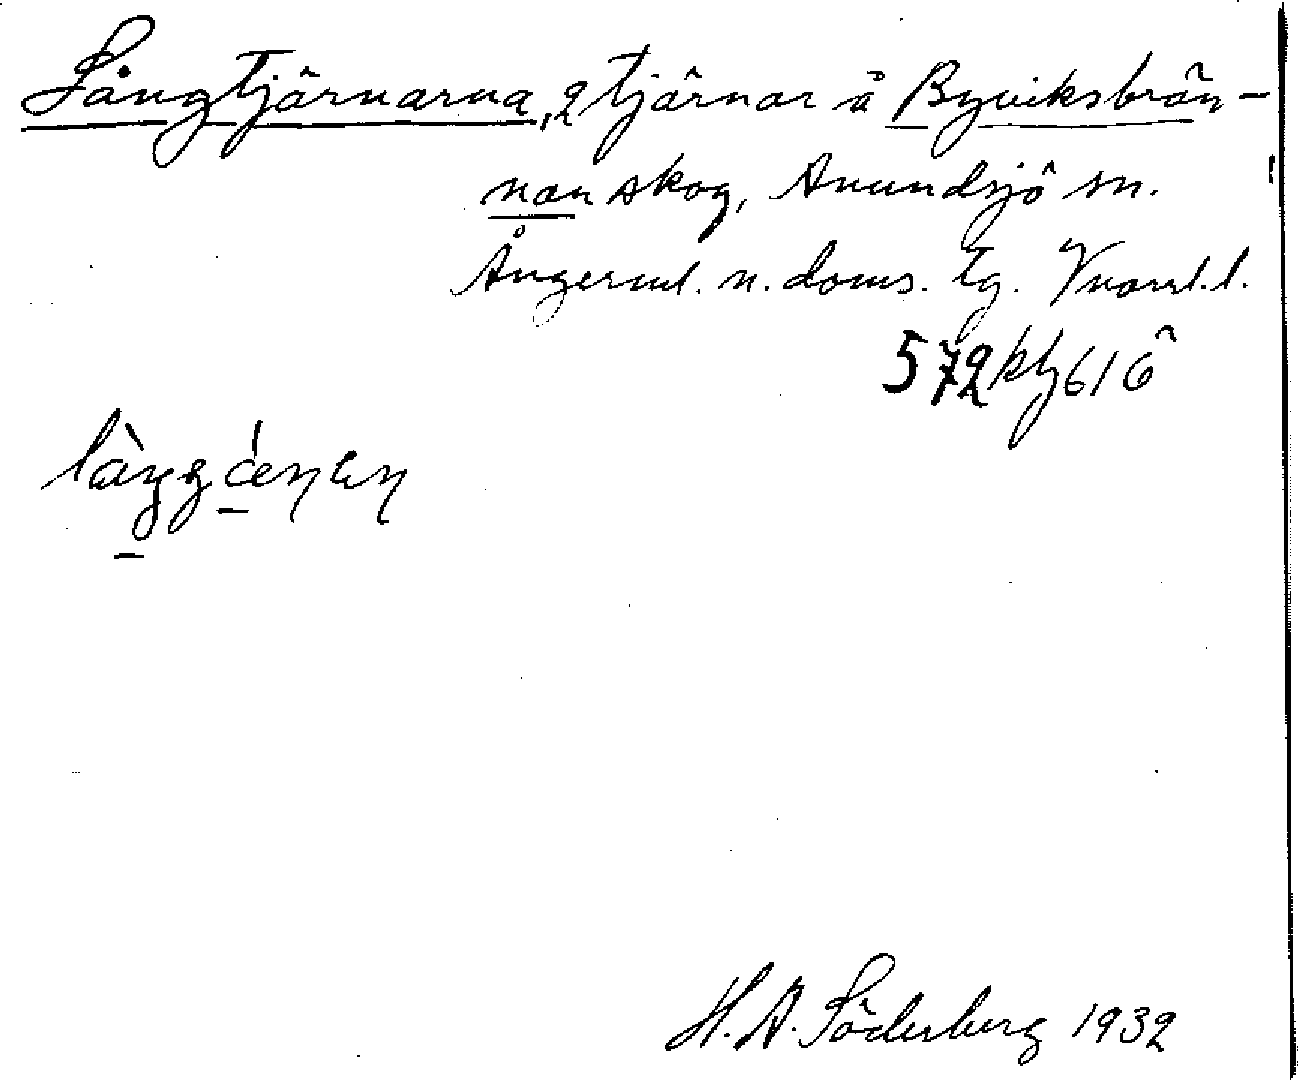 Långtjärnarna, 2 tjärnar å Byviksbrän-
nan skog, Anundsjö sn.
Ångerml. n. doms. tg. Vnorrl. l.
572 kbj 616
H. A. Söderberg 1932